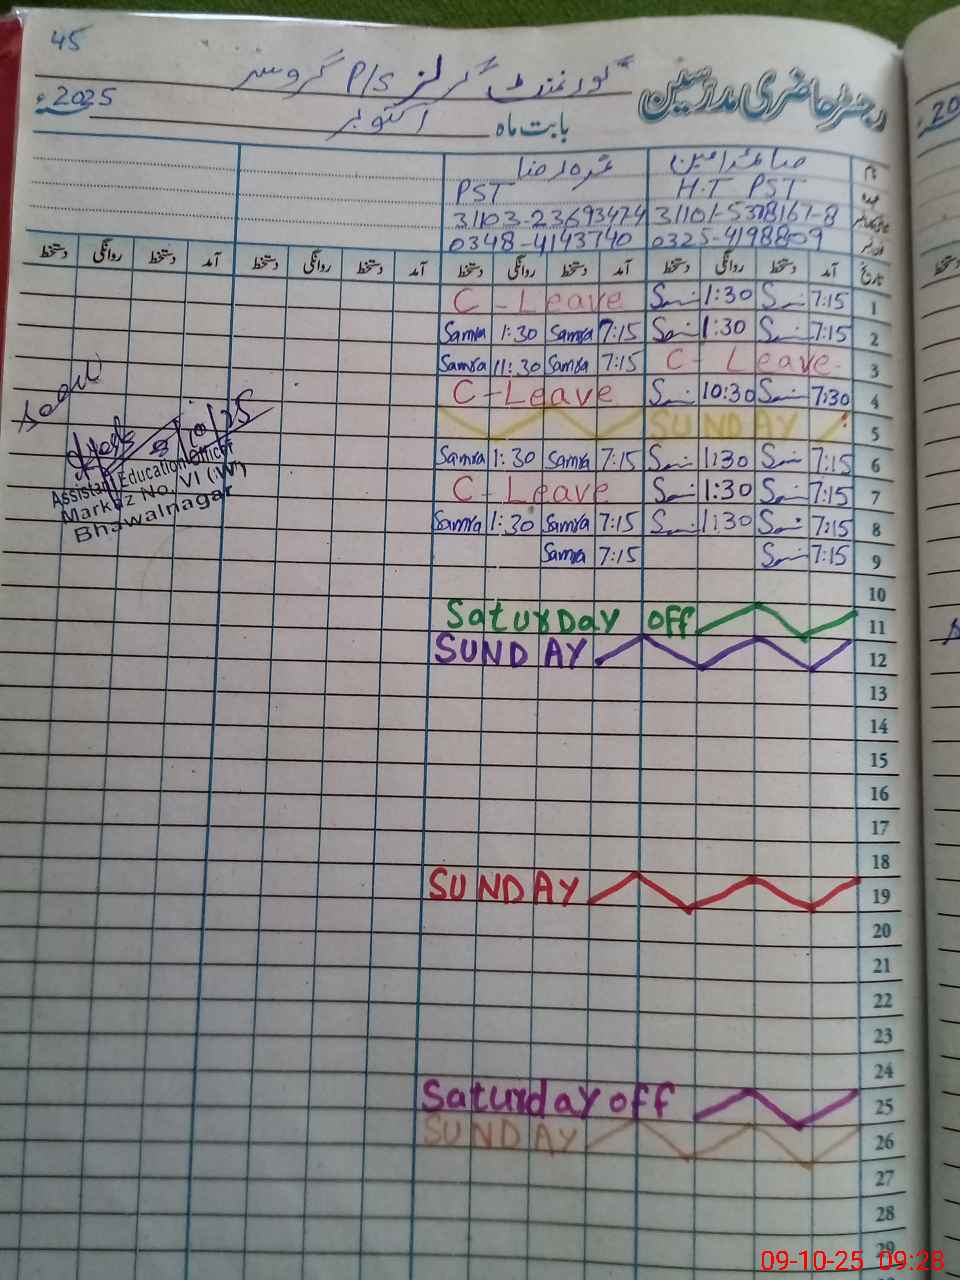 45
رجسٹر حاضری مدرسین
گورنمنٹ گرلز P/S گروسر
بابت ماہ اکتوبر 2025ء
نام
عہدہ PST H.T PST
31103-23693474 31101-5378167-8
0348-4143740 0325-4198809
تاریخ آمد دستخط روانگی دستخط آمد دستخط روانگی دستخط آمد دستخط روانگی دستخط آمد دستخط روانگی دستخط
C-Leave 1:30 7:15 1
Samra 1:30 Samra 7:15 1:30 7:15 2
Samra 11:30 Samra 7:15 C-Leave 3
C-Leave 10:30 7:30 4
SUNDAY 5
Samra 1:30 Samra 7:15 1:30 7:15 6
C-Leave 1:30 7:15 7
Samra 1:30 Samra 7:15 1:30 7:15 8
Samra 7:15 7:15 9
10
Saturday off 11
SUNDAY 12
13
14
15
16
17
18
SUNDAY 19
20
21
22
23
24
Saturday off 25
SUNDAY 26
27
28
29
Assistant Education Officer
Markaz No. VI (W)
Bhawalnagar
20
09-10-25 09:28